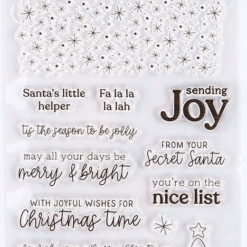 Santa's little
helper
Fa la la
la lah
sending
Joy
tis the season to be jolly
FROM YOUR
Secret Santa
may all your days be
merry & bright
you're on the
nice list
WITH JOYFUL WISHES FOR
Christmas time